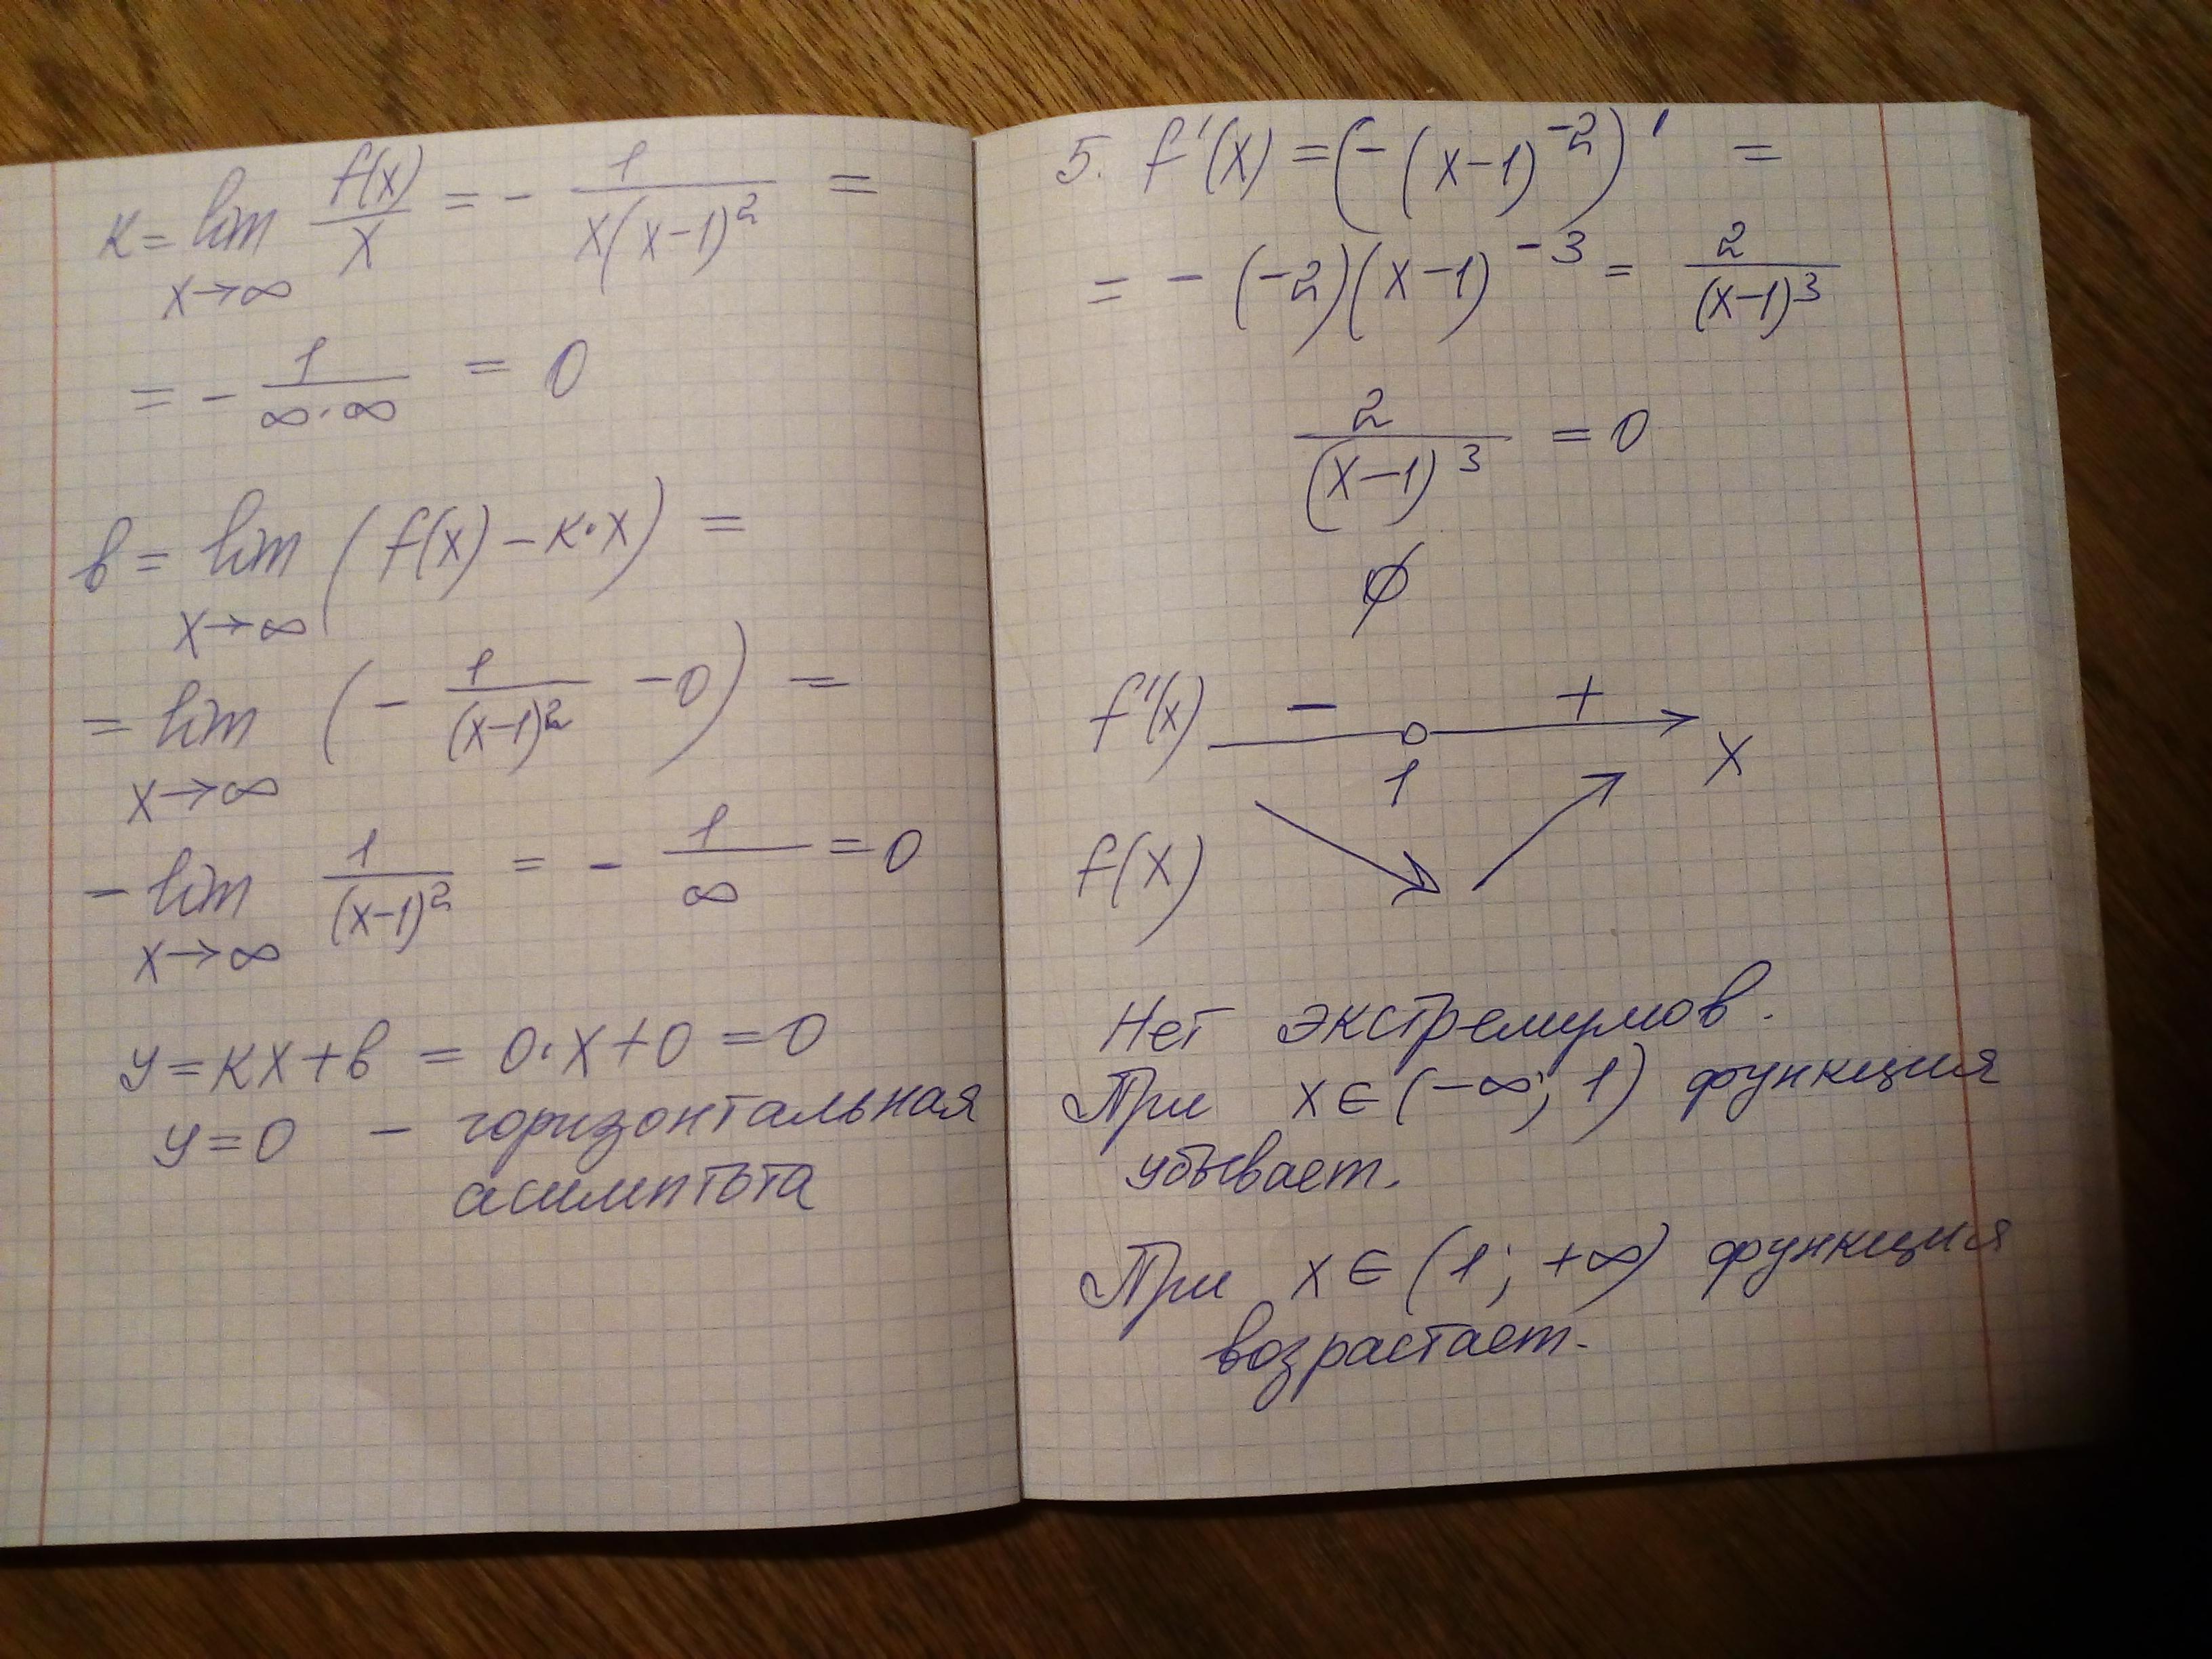 к = lim x→∞ f(x)/x = - 1/(x(x-1)²) =
= - 1/(∞·∞) = 0
в = lim x→∞ (f(x) - к·x) =
= lim x→∞ (- 1/(x-1)² - 0) =
- lim x→∞ 1/(x-1)² = - 1/∞ = 0
y = кx + в = 0·x + 0 = 0
y = 0 - горизонтальная
асимптота
5. f'(x) = (-(x-1)⁻²)' =
= - (-2)(x-1)⁻³ = 2/(x-1)³
2/(x-1)³ = 0
∅
f'(x) - + x
1
f(x)
Нет экстремумов.
При x ∈ (-∞; 1) функция
убывает.
При x ∈ (1; +∞) функция
возрастает.